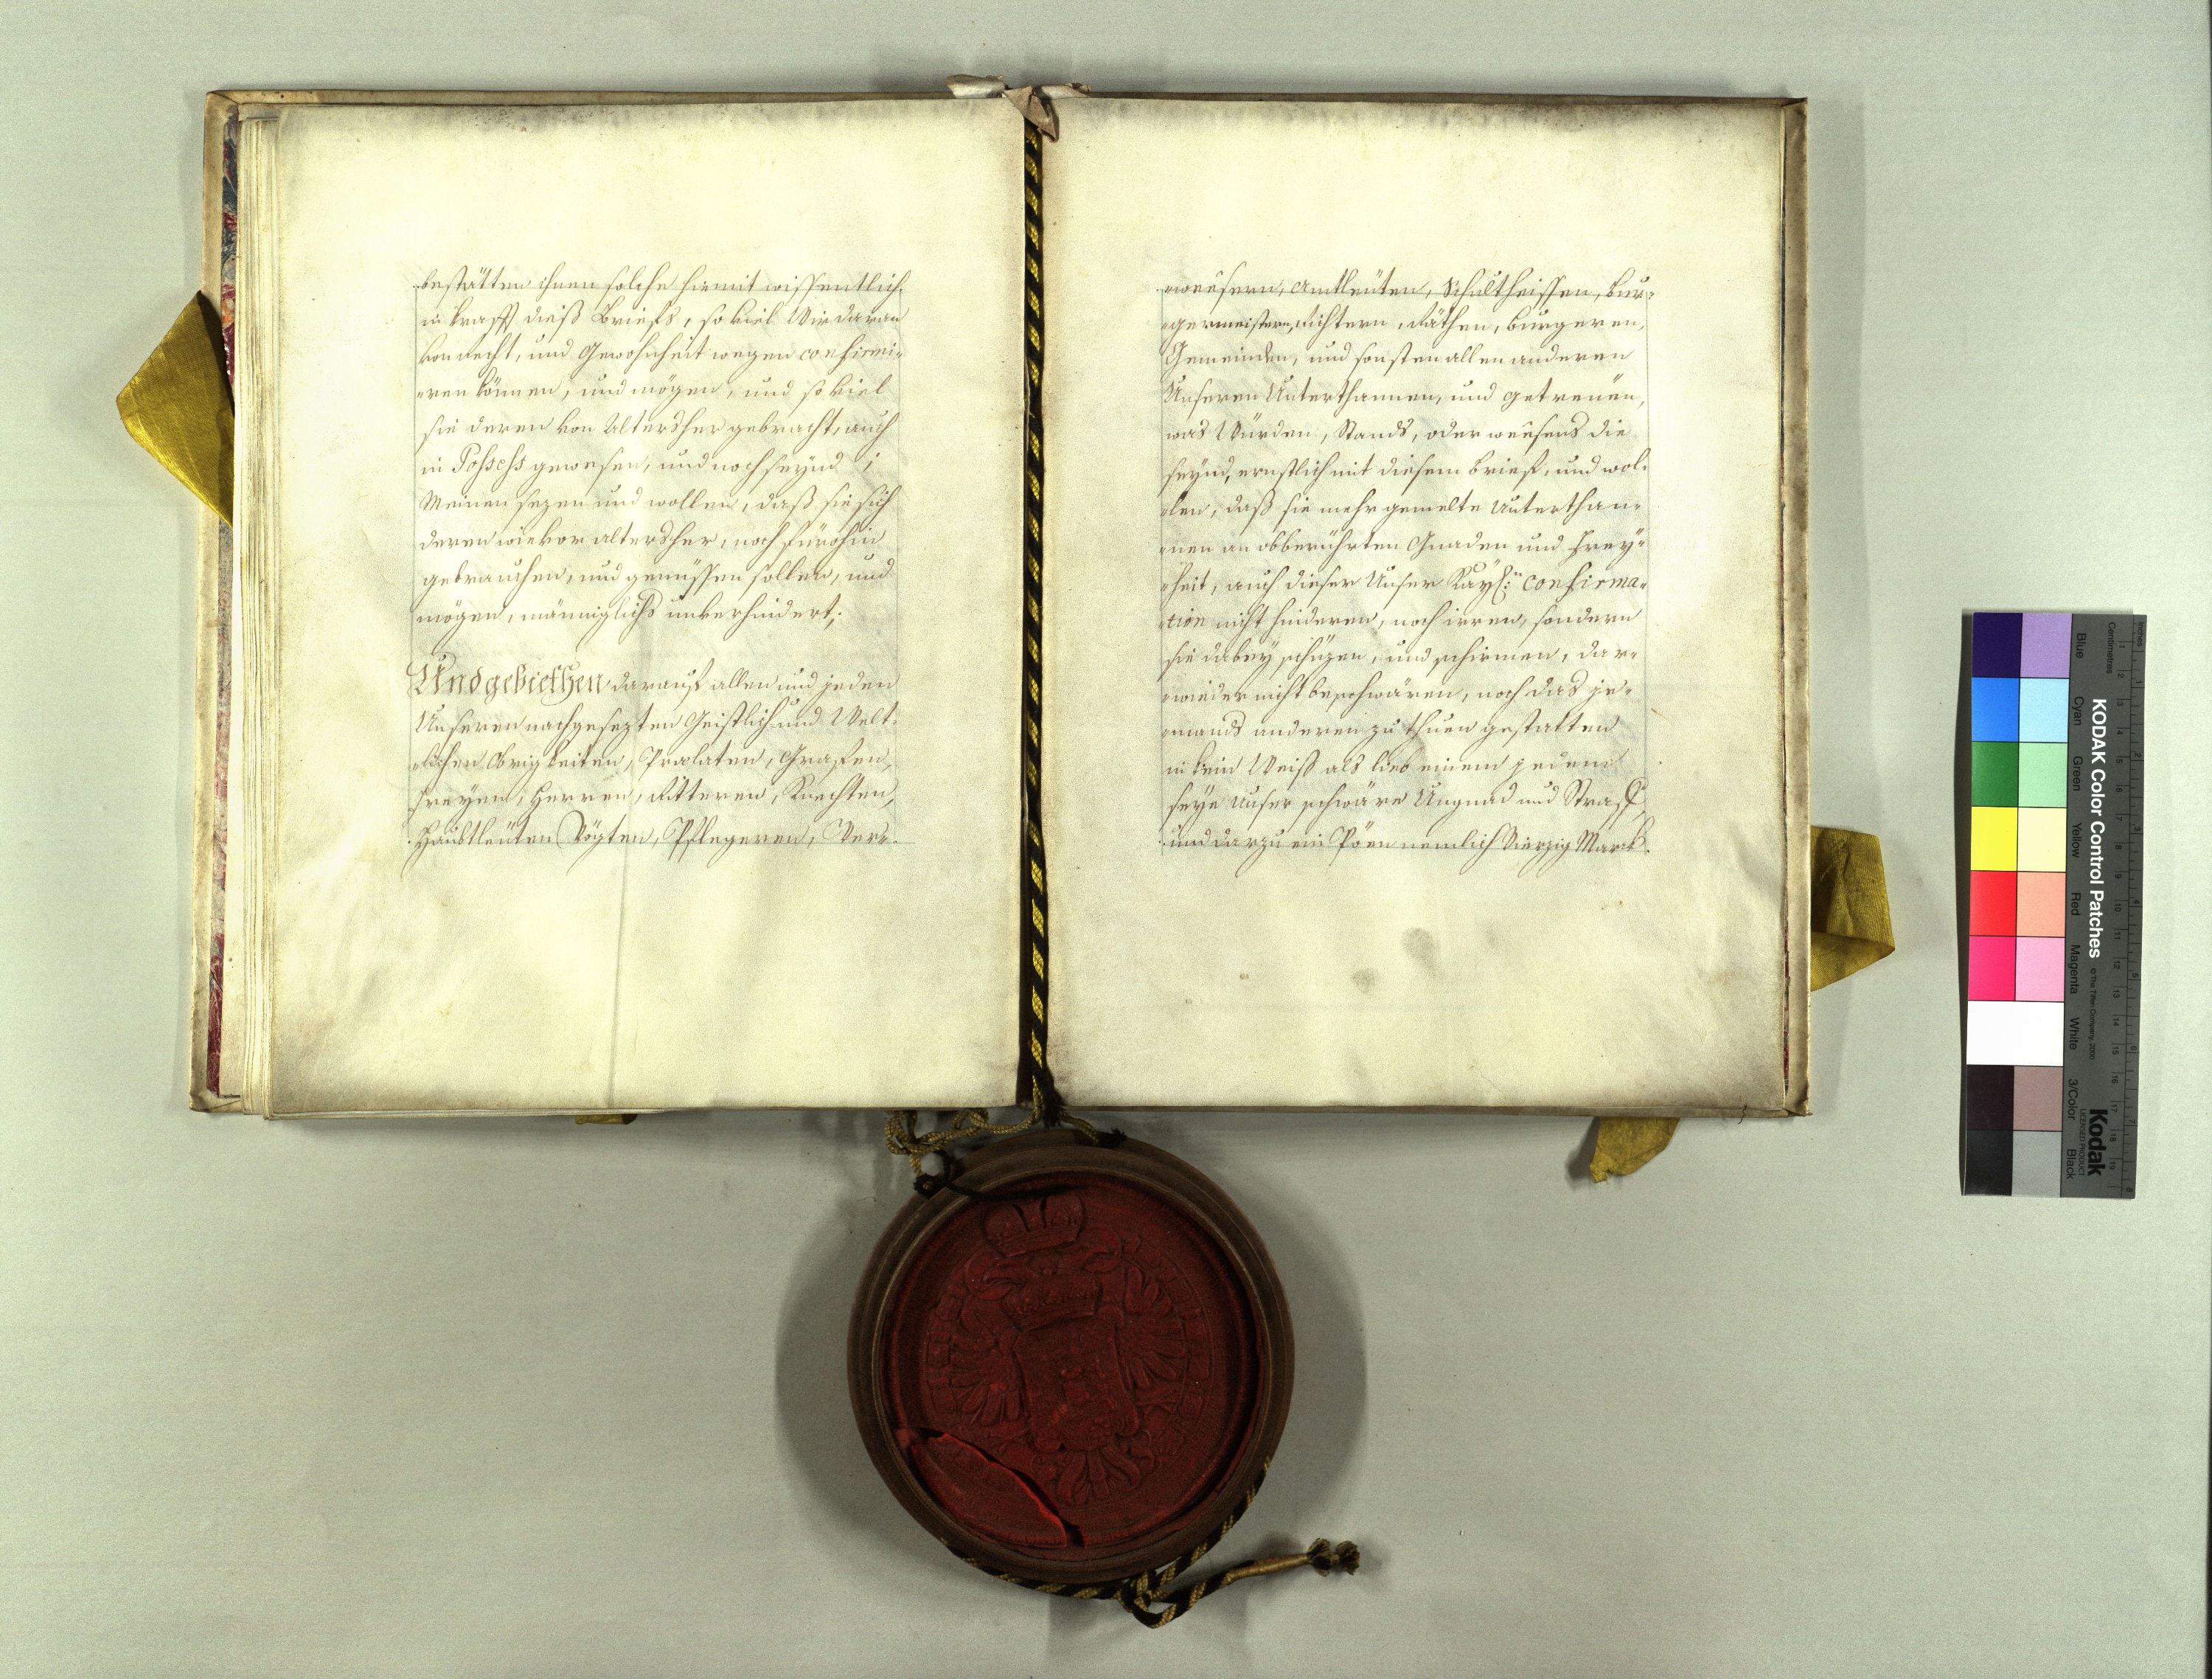 bestätten ihnen solche hiemit wissentlich
in krafft dieß Briefs, so viel Wir daran
von recht, und Gewohnheit wegen confirmi-
-ren können, und mögen, und so viel
sie deren von Altersher gebracht, auch
in Possess gewesen, und noch seynd ;
Meinen sezen und wollen, daß sie sich
deren wie vor altersher, noch fürohin
gebrauchen, und genüssen sollen, und
mögen, männiglichs unverhindert;
Und gebiethen darauf allen und jeden
Unseren nachgesezten Geistlich und Welt-
-lichen Obrigkeiten, Prælaten, Grafen,
freyen, Herren, Ritteren, Knechten,
Haubtleuten Vögten, Pflegeren, Ver-
-weesern, Amtleuten, Schultheissen, bur-
-germeistern, Richtern, Räthen, burgeren,
Gemeinden, und sonsten allen anderen
Unseren Unterthannen, und getreuen,
was Würden, Stands, oder weesens die
seynd, ernstlich mit diesem brief, und wol-
-len, daß sie mehr gemelte Unterthan-
-nen an obberührten Gnaden und frey-
-heit, auch dieser Unser Kayl: confirma-
-tion nicht hinderen, noch irren, sondern
sie dabey schüzen, und schirmen, dar-
-wieder nicht beschwären, noch das je-
-mands anderen zu thuen gestatten
in kein Weiß als lieb einem jedem
seye unser schwäre Ungnad und Straff,
und darzu ein Pöen nemlich Vierzig Marck
KODAK Color Control Patches
© The Tiffen Company, 2000
Kodak
LICENSED PRODUCT
Blue Cyan Green Yellow Red Magenta White 3/Color Black
Inches
Centimetres